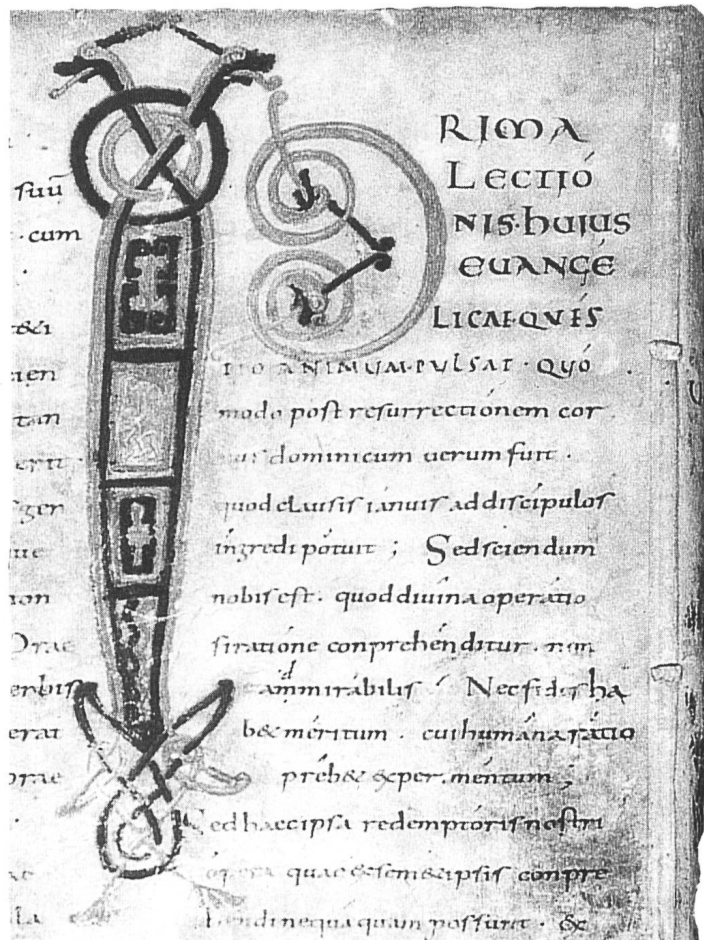 suū
· cum
ien
tan
erit ·
ger
ue
non
Orae
erbis
erat
prae
la
PRIMA
LECTIÓ
NIS·huius
EVANGE
LICAE·QVES
TIO ANIMUM·PULSAT · QUÓ
modo post resurrectiónem cor
pus dominicum uerum fuit ·
quod clausis ianuis ad discípulos
íngredi pótuit ; Sed sciendum
nobis est · quod diuina operátio
si ratióne conprehénditur · non
ádmmirábilis · Nec fides ha
b& méritum · cui humána rátio
préb& experimentum ;
Sed haec ipsa redemptóris nostri
ópera quae ex sem&ipsis conpre
hendi nequáquam possunt · &